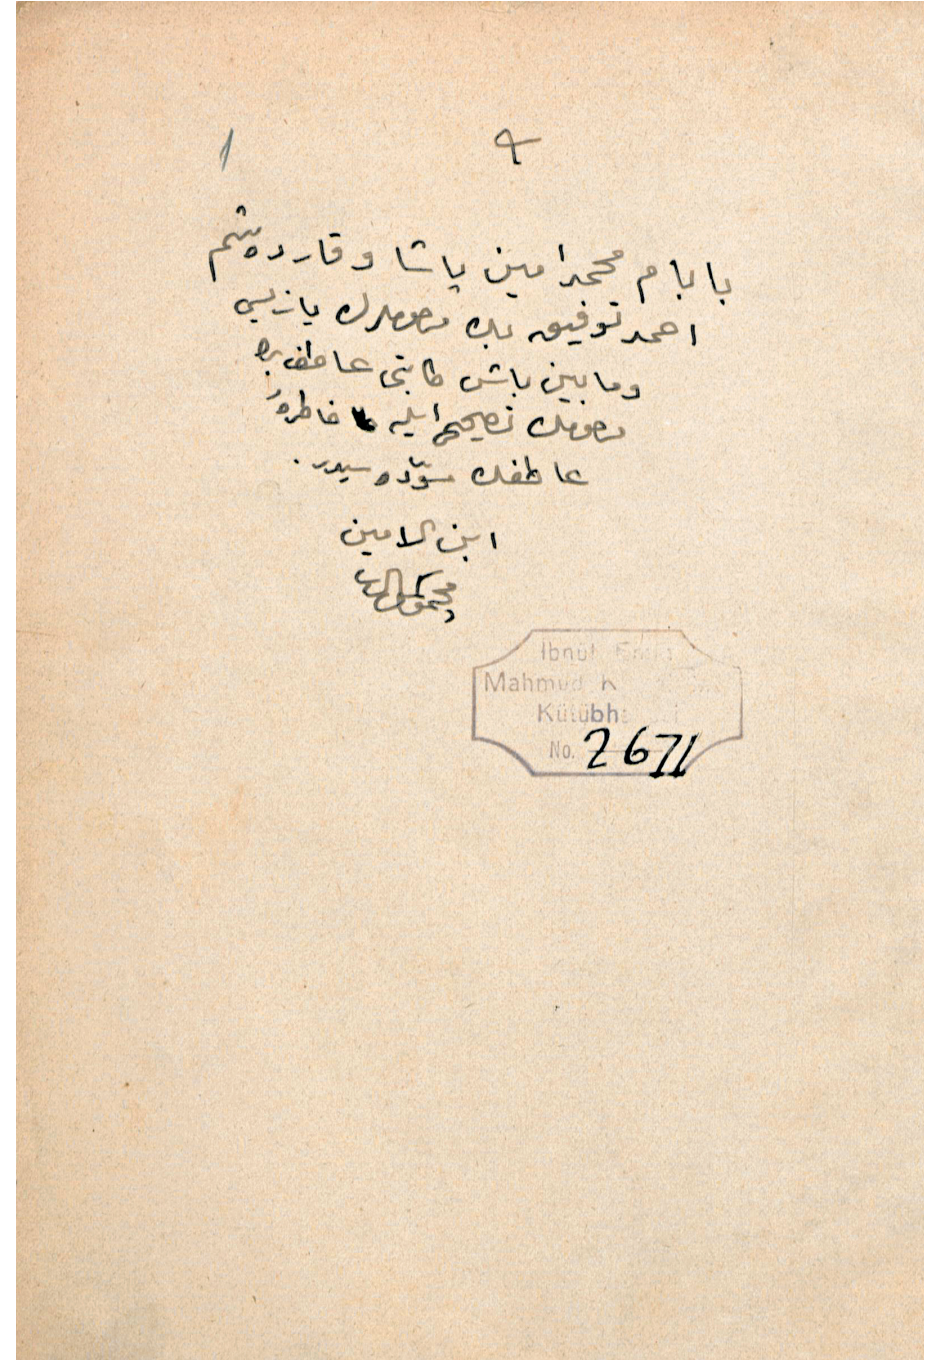 ١
بابام محمد امین پاشا و قارده شم
احمد توفیق بك مرحوملرك یازیسی
و مابین باش كاتبی عاطف بك
مرحومك تصحیحی ایله خاطرهٔ
عاطفك مسوّده سیدر.
ابن الامین
محمود كمال
İbnül Emin
Mahmud K
Kütübhanesi
No. 2671